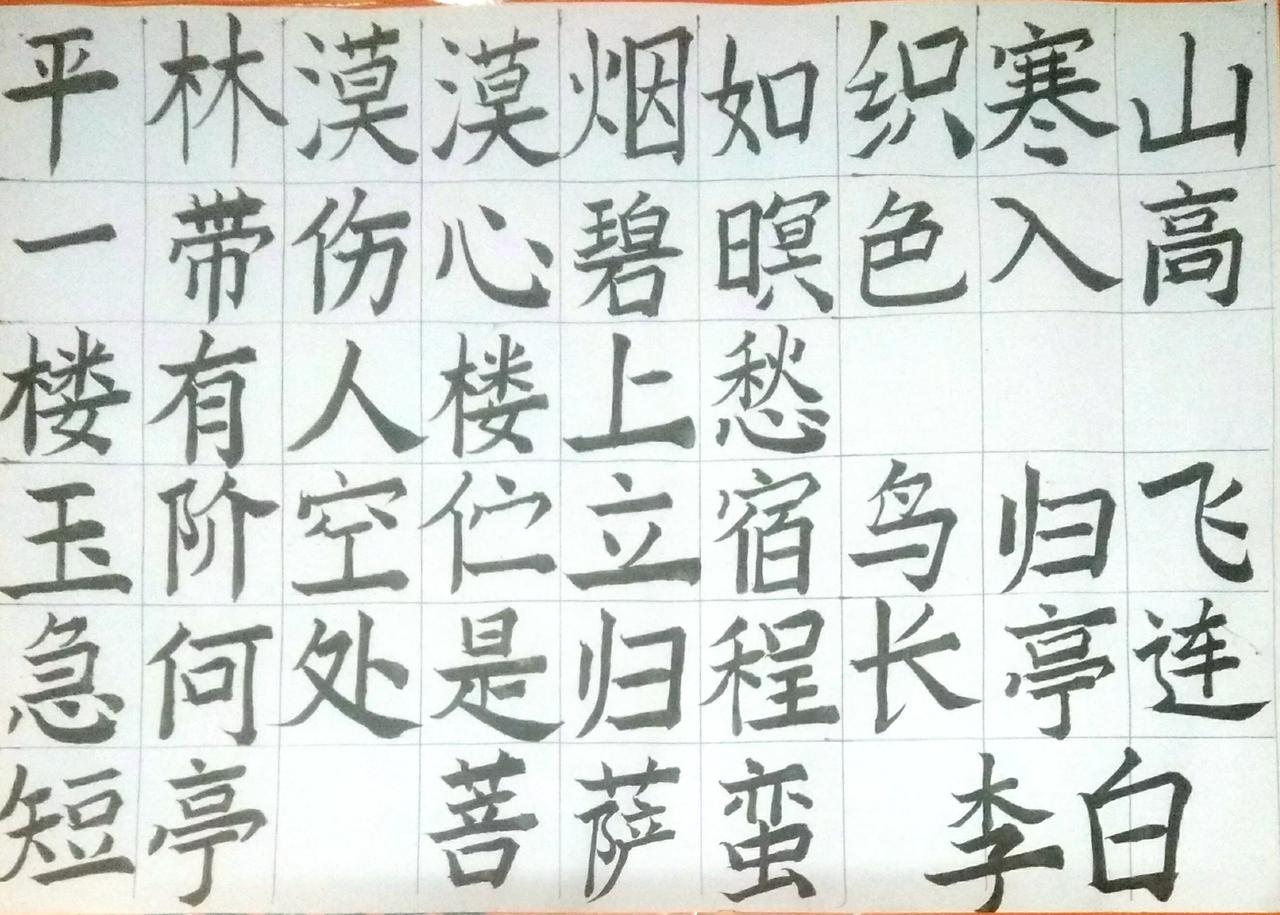 平林漠漠烟如织寒山
一带伤心碧暝色入高
楼有人楼上愁
玉阶空伫立宿鸟归飞
急何处是归程长亭连
短亭 菩萨蛮 李白